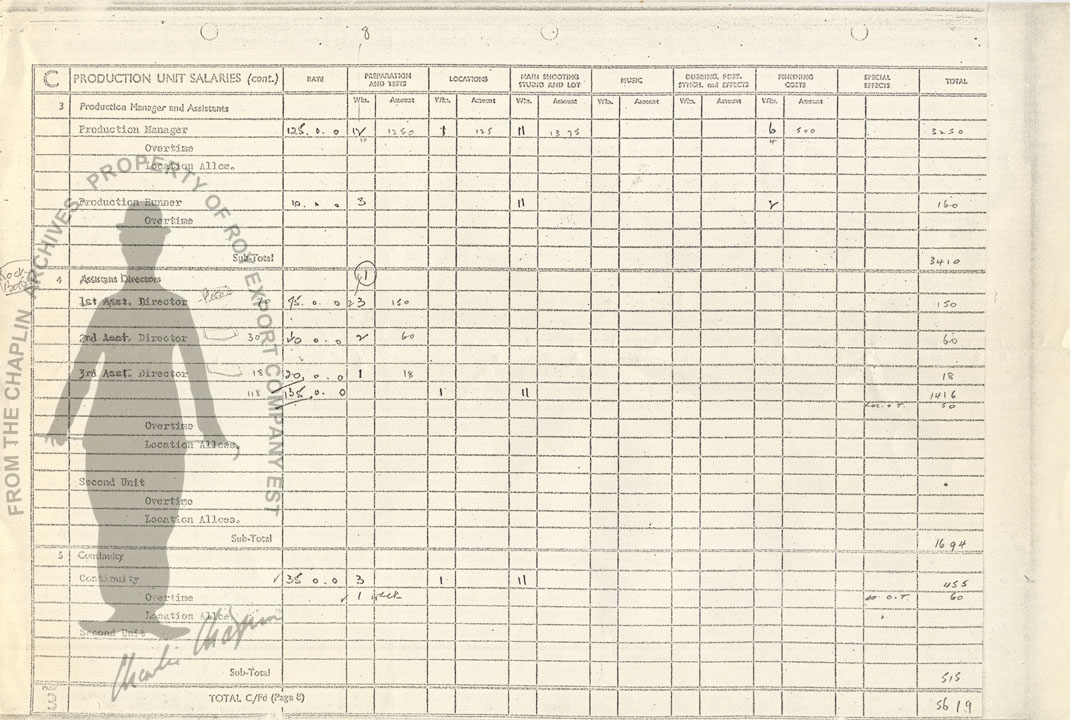 8
C PRODUCTION UNIT SALARIES (cont.) RATE PREPARATION AND TESTS LOCATIONS MAIN SHOOTING STUDIO AND LOT MUSIC DUBBING, POST-SYNCH. and EFFECTS FINISHING COSTS SPECIAL EFFECTS TOTAL
Wks. Amount Wks. Amount Wks. Amount Wks. Amount Wks. Amount Wks. Amount
3 Production Manager and Assistants
Production Manager 125. 0. 0 12 1250 1 125 11 1375 6 500 3250
10 4
Overtime
Location Allce.
Production Runner 10. 0. 0 3 11 2 160
Sub-Total 3410
4 Assistant Directors 1
1st Asst. Director 75. 0. 0 3 150 150
2nd Asst. Director 30 40 0. 0 2 60 60
3rd Asst. Director 18 20. 0. 0 1 18 18
118 135. 0. 0 1 11 1416
Loc. O.T. 50
Overtime
Location Allces.
Second Unit
Overtime
Location Allces.
Sub-Total 1694
5 Continuity
Continuity 35 0. 0 3 1 11 455
Overtime 1 week O.T. 60
Location Allce
Second Unit
Sub-Total 515
TOTAL C/Fd (Page 8) 5619
FROM THE CHAPLIN ARCHIVES. PROPERTY OF ROY EXPORT COMPANY EST
Charlie Chaplin